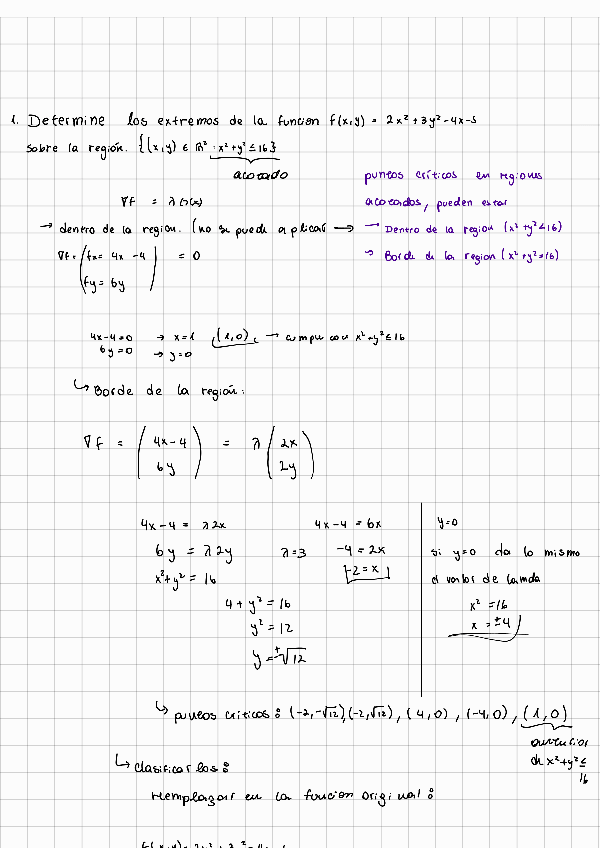 1. Determine los extremos de la funcion f(x,y) = 2x² + 3y² - 4x - 5
sobre la región. {(x,y) ∈ ℝ² : x² + y² ≤ 16}
acotado
puntos críticos en regiones
acotados, pueden estar
→ Dentro de la region (x² + y² < 16)
→ Borde de la region (x² + y² = 16)
∇f = λ
→ dentro de la region. (no se puede aplicar →
∇f = ( fx = 4x - 4 ) = 0
fy = 6y
4x - 4 = 0 → x = 1 (1,0), → cumple con x² + y² ≤ 16
6y = 0 → y = 0
↳ Borde de la región:
∇f = ( 4x - 4 ) = λ ( 2x )
6y 2y
4x - 4 = λ2x
6y = λ2y λ = 3
x² + y² = 16
4x - 4 = 6x
-4 = 2x
-2 = x
4 + y² = 16
y² = 12
y = ±√12
y = 0
si y=0 da lo mismo
el valor de lamda
x² = 16
x = ±4
↳ puntos criticos : (-2, -√12), (-2, √12), (4,0), (-4,0), (1,0)
de x² + y² ≤
16
↳ clasificarlos :
remplazar en la funcion original :